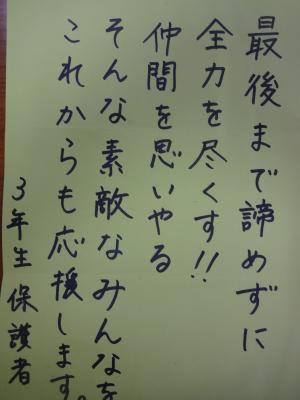 最後まで諦めずに
全力を尽くす!!
仲間を思いやる
そんな素敵なみんなを
これからも応援します。
3年生 保護者